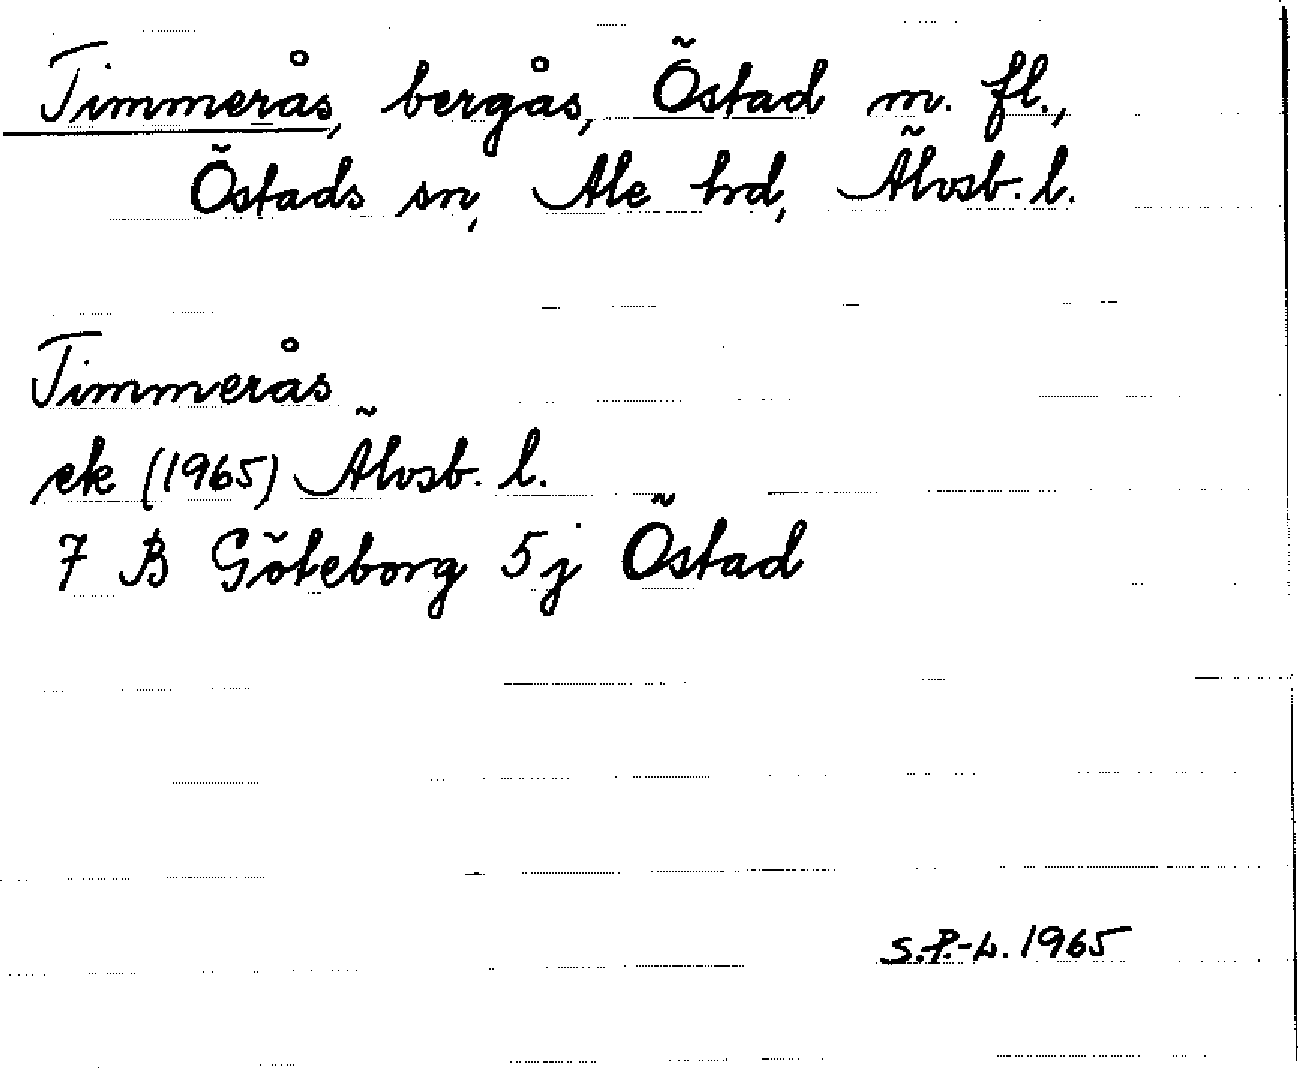 Timmerås, bergås, Östad m. fl.,
Östads sn, Ale hrd, Älvsb. l.
Timmerås
ek (1965) Älvsb. l.
7 B Göteborg 5 j Östad
S.P.-L. 1965